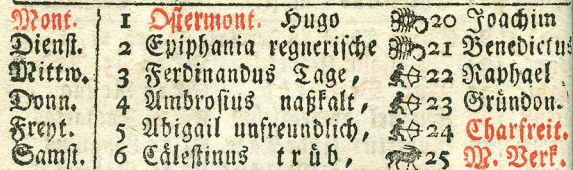 Mont. 1 Oſtermont. Hugo 20 Joachim
Dienſt. 2 Epiphania regneriſche 21 Benedictus
Mittw. 3 Ferdinandus Tage, 22 Raphael
Donn. 4 Ambroſius naßkalt, 23 Gründon.
Freyt. 5 Abigail unfreundlich, 24 Charfreit.
Samſt. 6 Cäleſtinus trüb, 25 M. Verk.